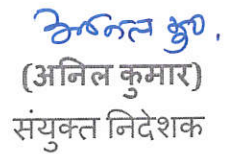 अनिल कुमार
(अनिल कुमार)
संयुक्त निदेशक